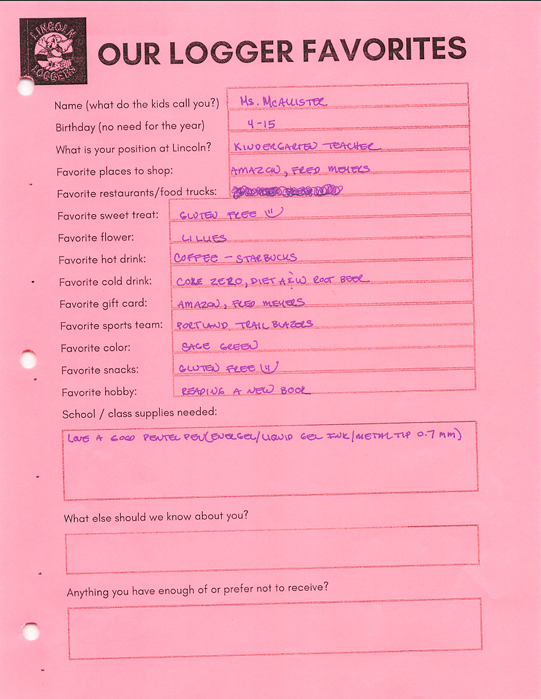 LINCOLN
LOGGERS
OUR LOGGER FAVORITES
Name (what do the kids call you?) Ms. McAllister
Birthday (no need for the year) 4-15
What is your position at Lincoln? KINDERGARTEN TEACHER
Favorite places to shop: AMAZON, FRED MEYERS
Favorite restaurants/food trucks:
Favorite sweet treat: GLUTEN FREE
Favorite flower: LILLIES
Favorite hot drink: COFFEE - STARBUCKS
Favorite cold drink: COKE ZERO, DIET A&W ROOT BEER
Favorite gift card: AMAZON, FRED MEYERS
Favorite sports team: PORTLAND TRAIL BLAZERS
Favorite color: SAGE GREEN
Favorite snacks: GLUTEN FREE
Favorite hobby: READING A NEW BOOK
School / class supplies needed:
LOVE A GOOD PENTEL PEN (ENERGEL/LIQUID GEL INK/METAL TIP 0.7 MM)
What else should we know about you?
Anything you have enough of or prefer not to receive?